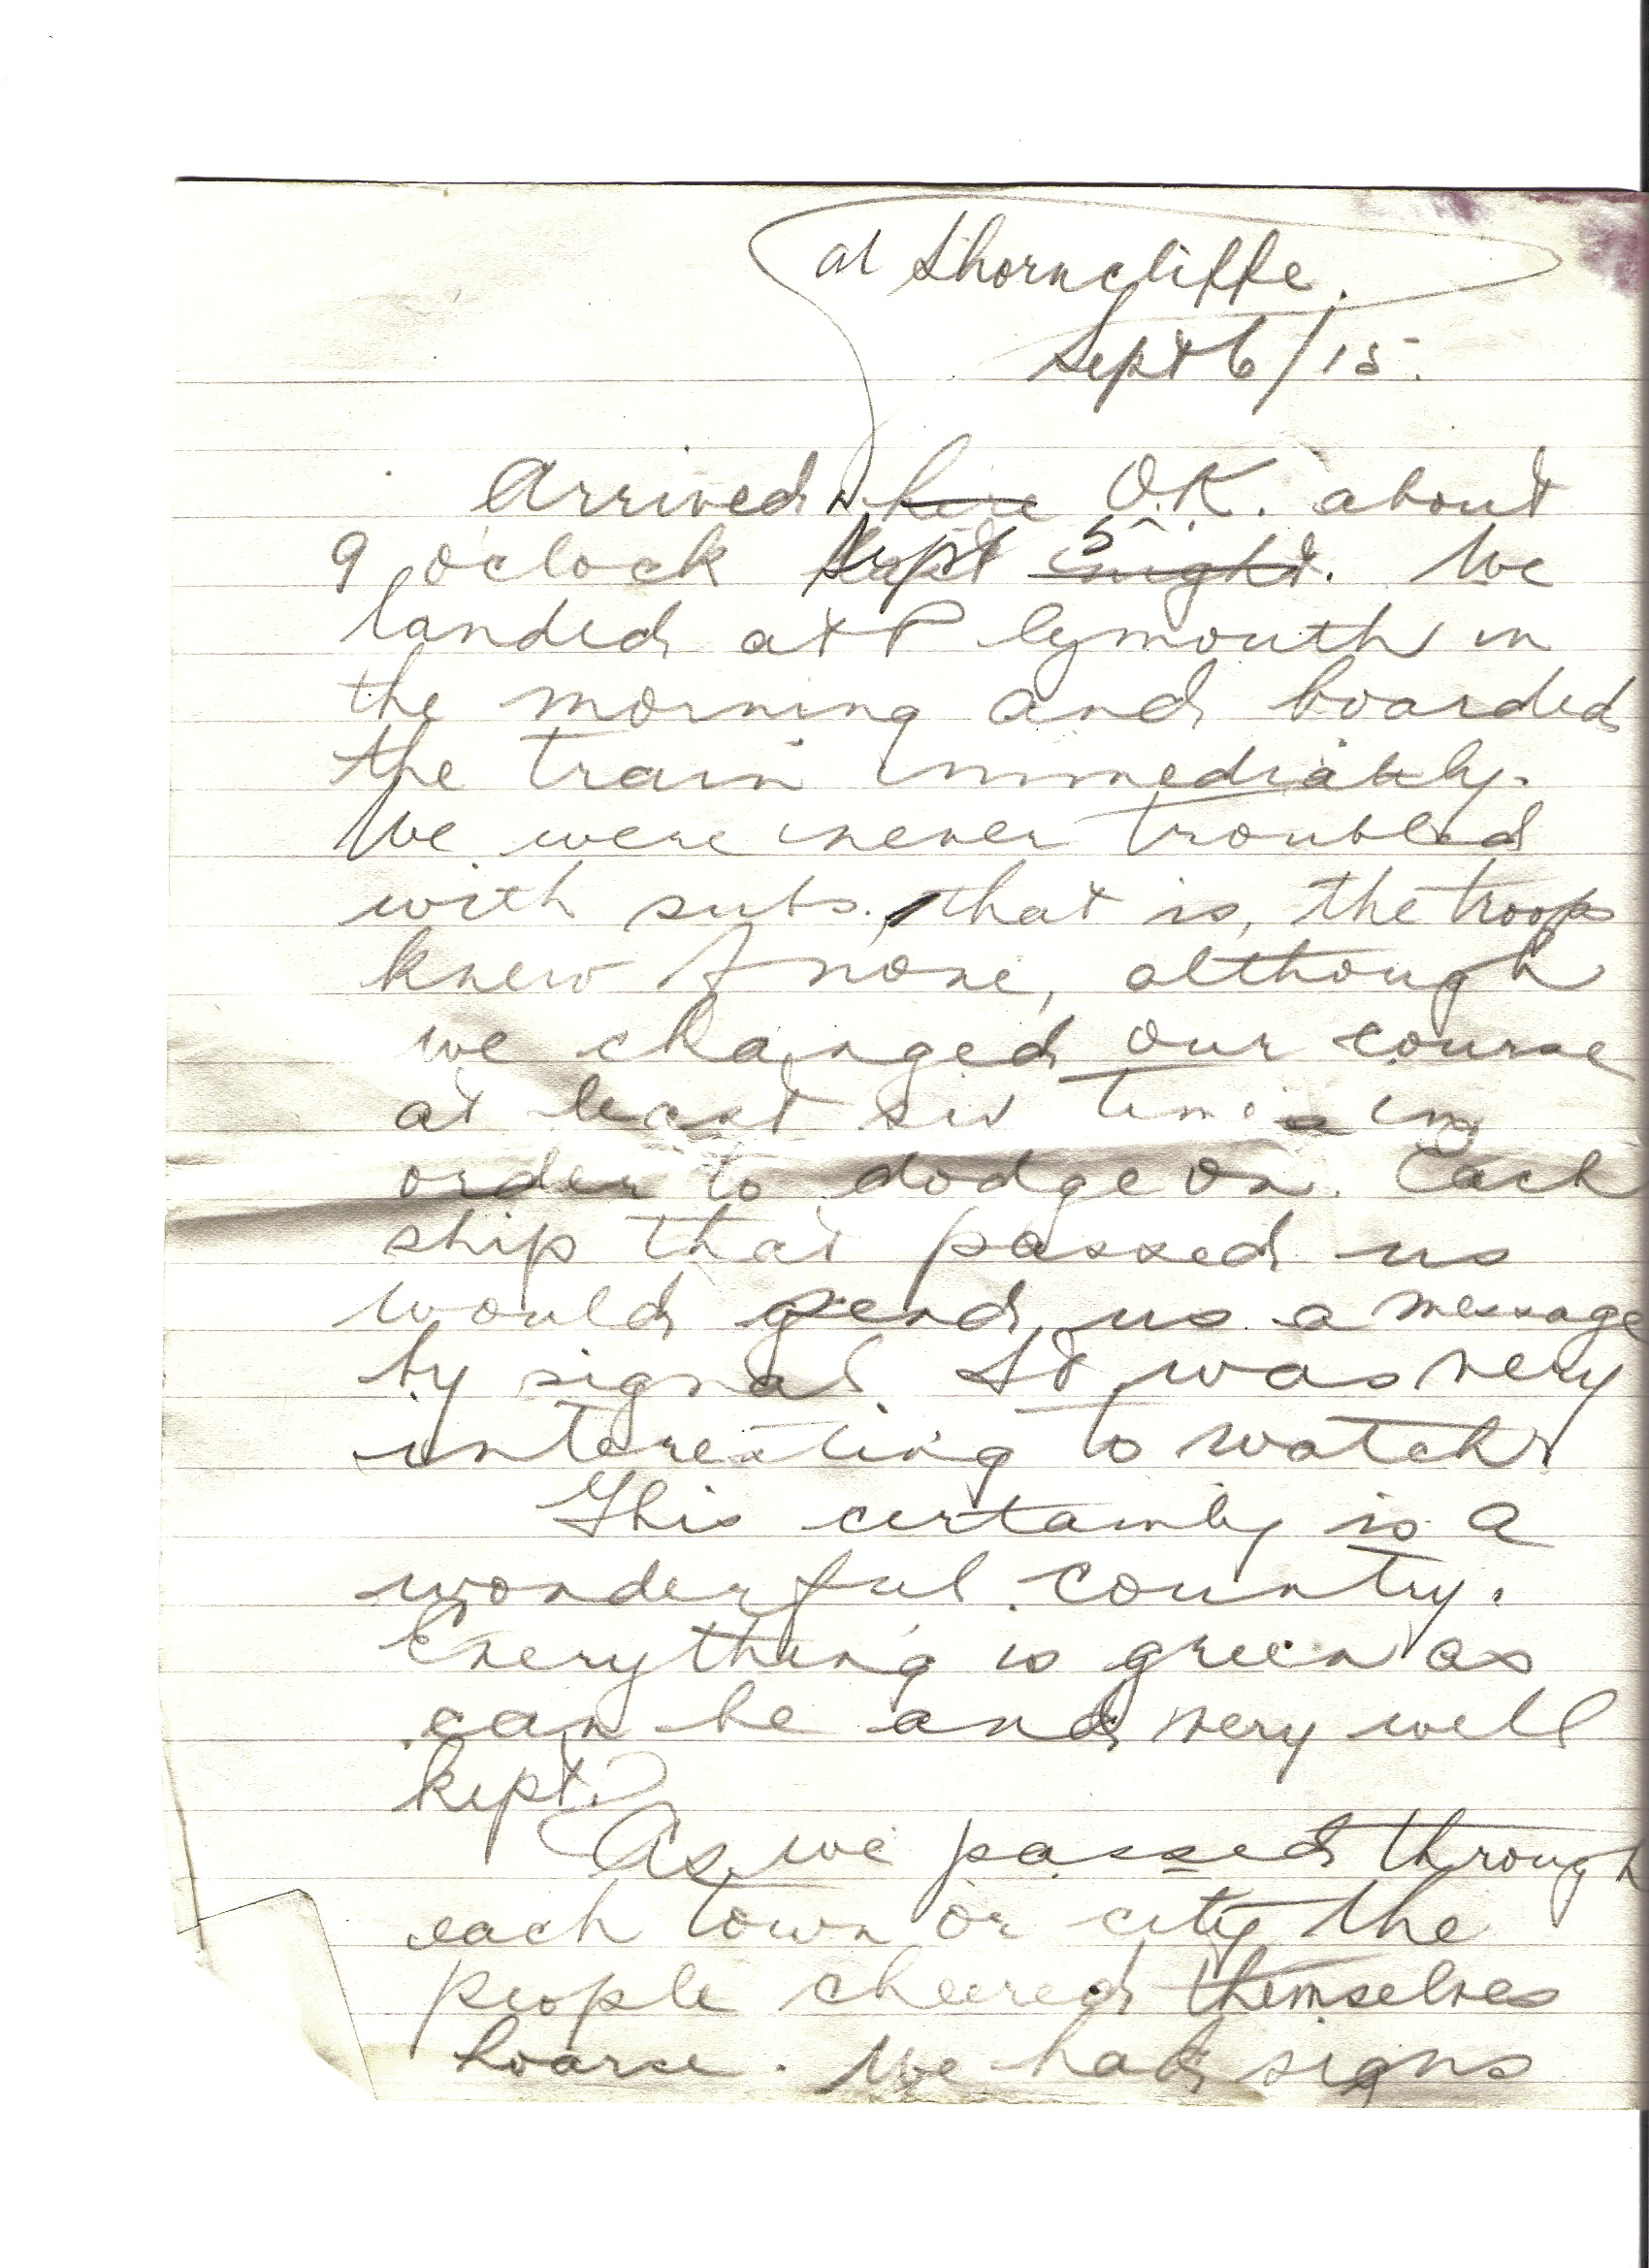 at Shorncliffe.
Sept 6/15.
Arrived here O.K. about
9 o'clock Sept 5 night. We
landed at Plymouth in
the morning and boarded
the train immediately.
We were never troubled
with subs., that is, the troops
knew of none, although
we changed our course
at least six times in
order to dodge on. Each
ship that passed us
would send us a message
by signal It was very
interesting to watch
This certainly is a
wonderful country.
Everything is green as
can be and very well
kept.
As we passed through
each town or city the
people cheered themselves
hoarse. We had signs